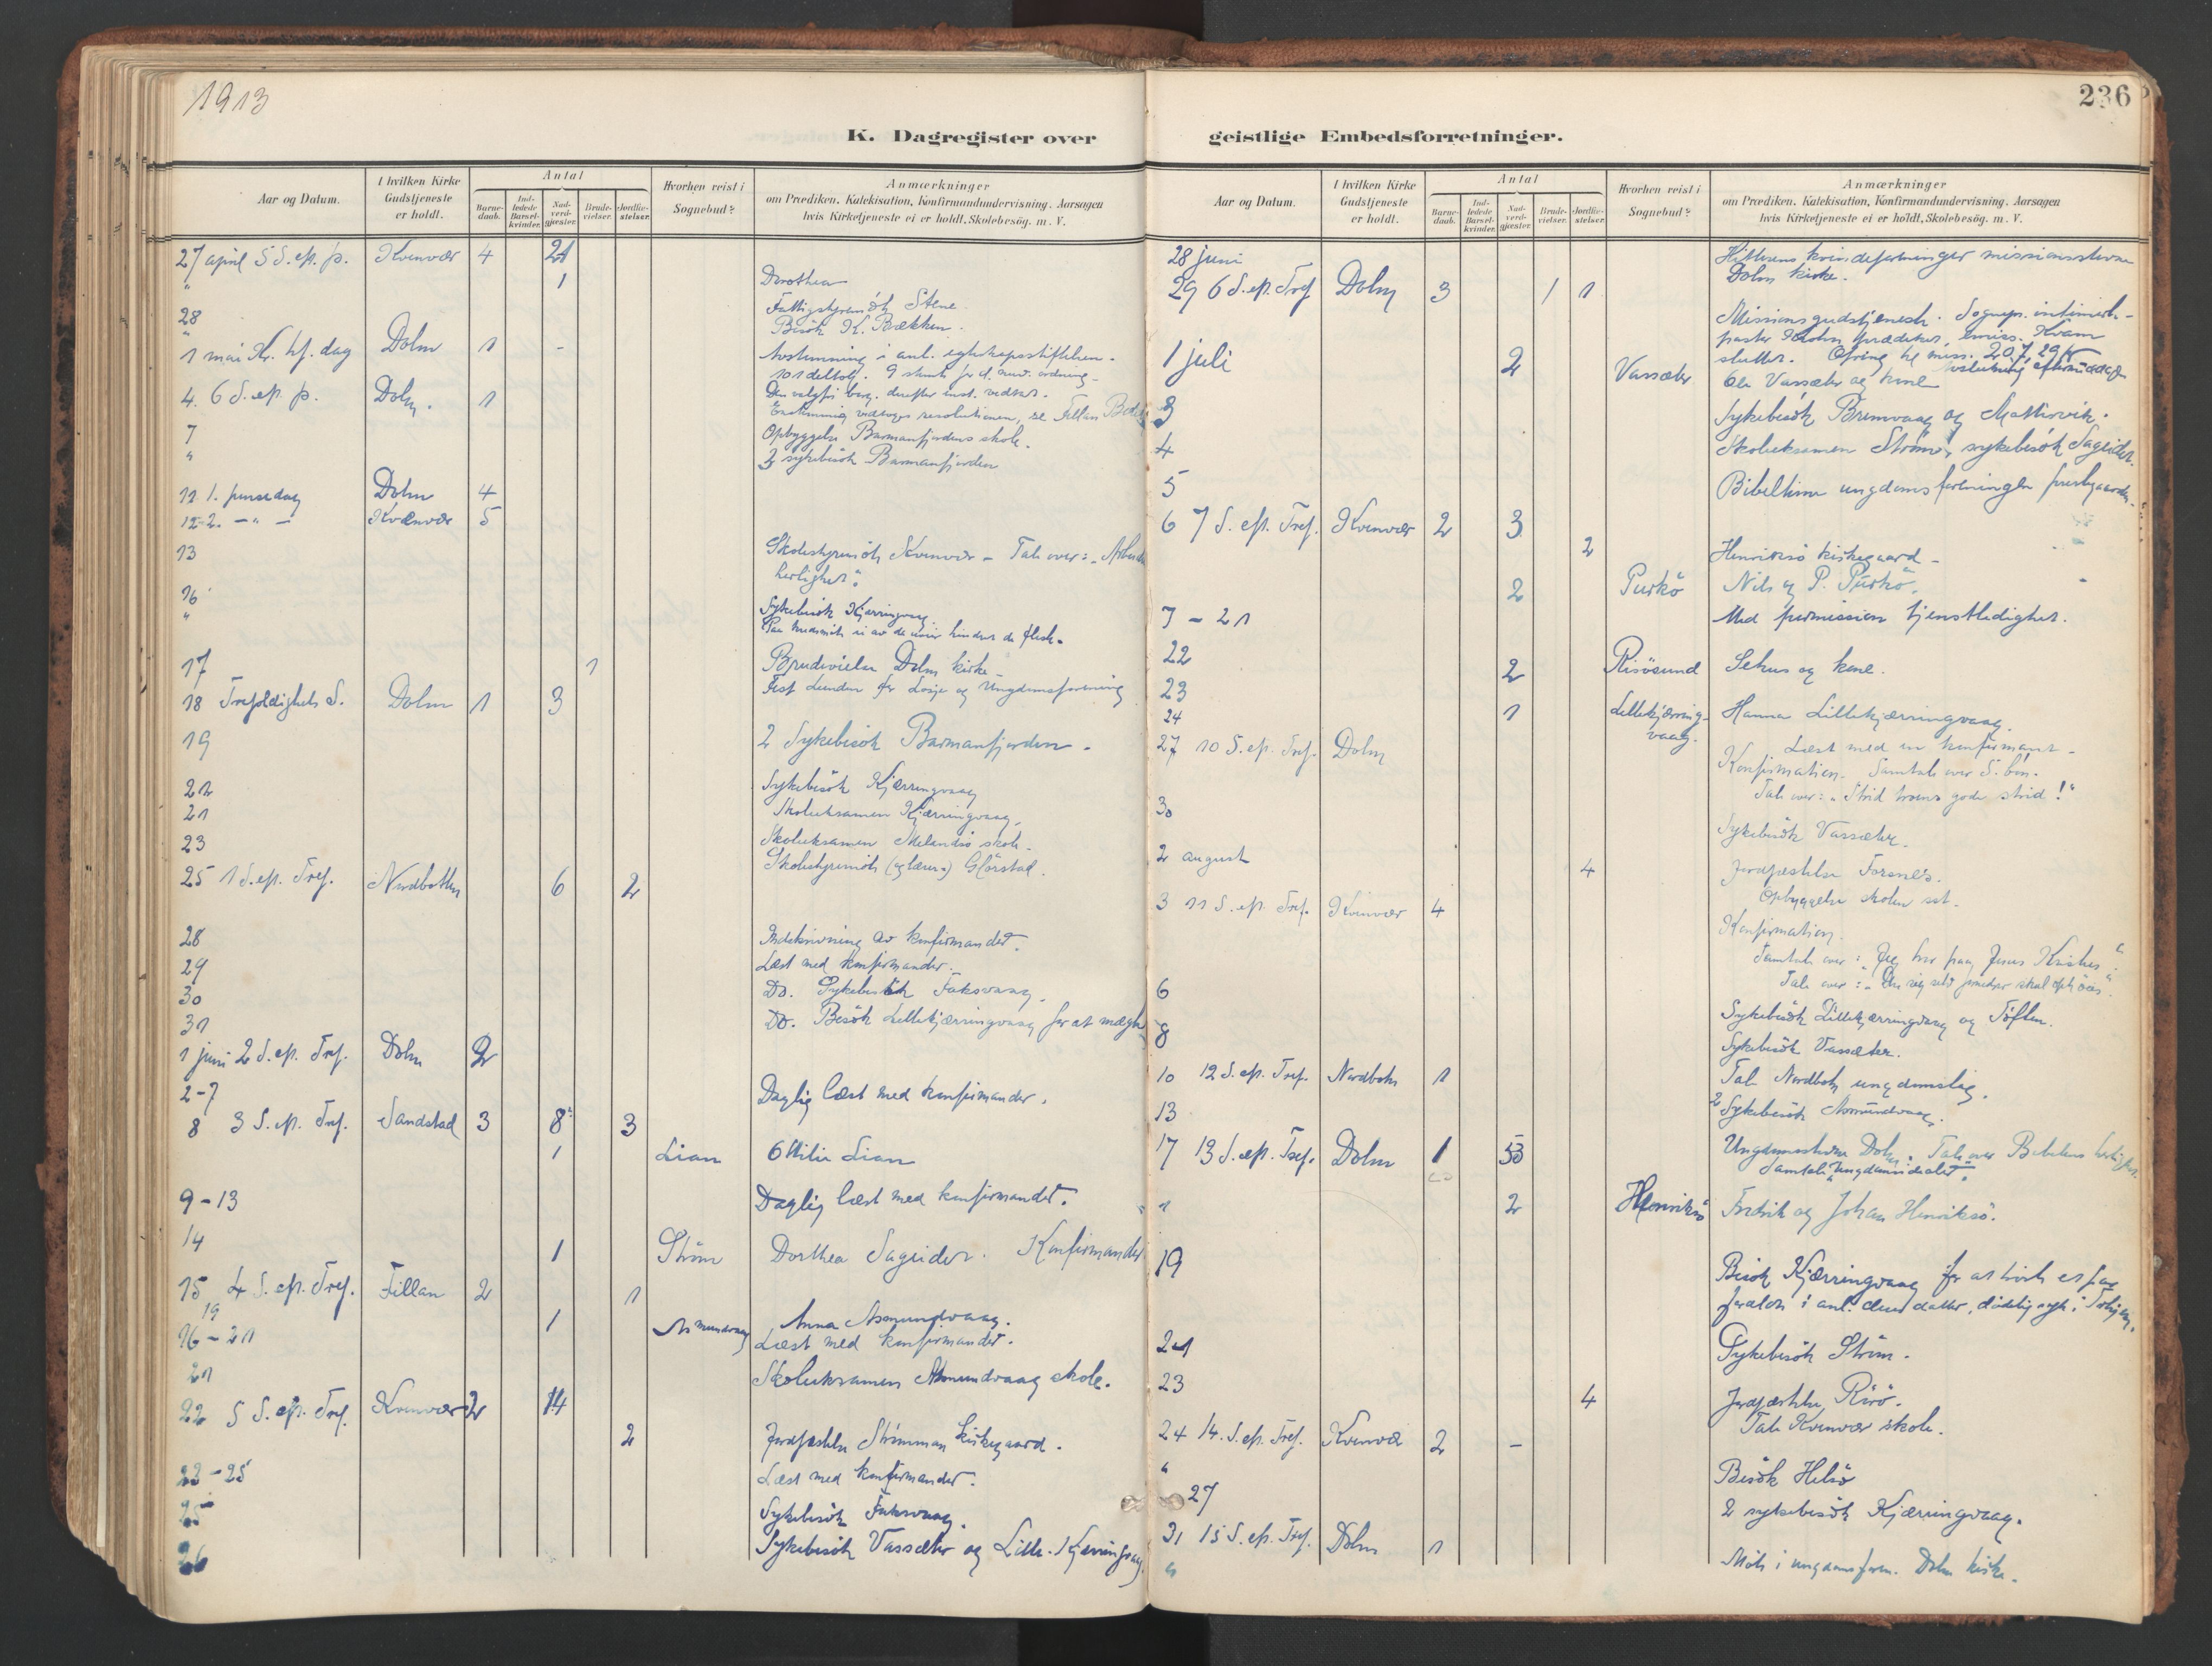 1913
236
K. Dagregister over geistlige Embedsforretninger.
Aar og Datum.
I hvilken Kirke Gudstjeneste er holdt.
Antal
Barne-daab.
Ind-ledede Barsel-kvinder.
Nad-verd-gjæster.
Brude-vielser.
Jordfæ-stelser.
Hvorhen reist i Sognebud?
Anmærkninger
om Prædiken, Katekisation, Konfirmandundervisning. Aarsagen
hvis Kirketjeneste ei er holdt. Skolebesøg. m. V.
27 april 5 S. ep. p. Kvenvær 4 21
" 1 Dorothea
28 Fattigstyremöte Stene.
" Besök K. Brækken.
1 mai Kr. hf. dag Dolm 1 -
Avstemning i anl.
4. 6 S. ep. p. Dolm. 1
7 Opbyggelse Barmanfjordens skole.
" 3 sykebesök Barmanfjorden
11 1. pinsedag Dolm 4
12 2. - " - Kvænvær 5
13 Skolestyremöte Kvenvær - Tale over:
herlighet".
16 Sykebesök Kjærringvaag
"
17 1 Brudevielse Dolm kirke -
18 Trefoldighets S. Dolm 1 3 Fest Lunden for Losje og Ungdomsforening
19 2 Sykebesök Barmanfjorden.
21 Sykebesök Kjærringvaag
21 Skoleeksamen Kjærringvaag.
23 Skoleeksamen Melandsö skole.
Skolestyremöte (og lærer) Glörstad.
25 1 S. ep. Tref. Nordbotten 6 2
28 Indskrivning av konfirmander.
29 Læst med konfirmander.
30 Do. Sykebesök Faksvaag.
31 Do. Besök Lillekjærringvaag for at mægle
1 juni 2 S. ep. Tref. Dolm 2
2-7 Daglig læst med konfirmander.
8 3 S. ep. Tref. Sandstad 3 8 3
1 Lian Ottilie Lian
9-13 Daglig læst med konfirmander.
14 1 Ström Dorthea Sageider. Konfirmander
15 4 S. ep. Tref. Fillan 2 1
19 1 Asmundvaag Anna Asmundvaag.
16-21 Læst med konfirmander.
21 Skoleeksamen Asmundvaag skole.
22 5 S. ep. Tref. Kvenvær 2 14
2 Jordfæstelse Strömman kirkegaard.
23-25 Læst med konfirmander.
25 Sykebesök Faksvaag.
26 Sykebesök Vassæter og Lille-Kjærringvaag.
Aar og Datum.
I hvilken Kirke Gudstjeneste er holdt.
Antal
Barne-daab.
Ind-ledede Barsel-kvinder.
Nad-verd-gjæster.
Brude-vielser.
Jordfæ-stelser.
Hvorhen reist i Sognebud?
Anmærkninger
om Prædiken, Katekisation, Konfirmandundervisning. Aarsagen
hvis Kirketjeneste ei er holdt, Skolebesøg. m. V.
28 juni Hitterens kvindeforeninger missionsstevne
Dolm kirke.
29 6 S. ep. Tref Dolm 3 1 1
Missionsgudstjeneste.
prædiker, emiss. Kvam
slutter. Ofring til miss. 20.7,29 kr
1 juli 2 Vassæter Ole Vassæter og kone
3 Sykebesök Bremvaag og Mattisvik.
4 Skoleeksamen Ström, sykebesök Sageider.
5 Bibeltime ungdomsforeningen prestegaarden.
6 7 S. ep. Tref. Kvenvær 2 3
2 Henriksö kirkegaard -
2 Purkö Nils og P. Purkö.
7 - 21 Med permission tjenstledighet.
22 2 Risösund Sehus og kone.
23 1 Lillekjærring-vaag. Hanna Lillekjærringvaag
24 Læst med en konfirmant -
27 10 S. ep. Tref. Dolm Konfirmation. Samtale over 5. bön.
Tale over: "Strid troens gode strid!"
30 Sykebesök Vassæter.
2 august 4 Jordfæstelse Forsnes.
Opbyggelse skolen sst.
3 11 S. ep. Tref. Kvenvær 4 Konfirmation.
Samtale over: "Jeg tror paa Jesus Kristus".
6 Sykebesök Lillekjærringvaag og Töften.
8 Sykebesök Vassæter.
10 12 S. ep. Tref. Nordbotn 1 Tale Nordbotn ungdomslag.
13 2 Sykebesök Asmundvaag.
17 13 S. ep. Tref. Dolm 1 53 Ungdomsstevne Dolm. Tale over Bibelens herlighet.
Samtale: "Ungdomsidealet".
" 2 Henriksö Fredrik og Johan Henriksö.
19 Besök Kjærringvaag for at
forældre i anl. deres datter, dödelig syk i
21 Sykebesök Ström.
23 4 Jordfæstelse Rörö.
Tale Kvenvær skole.
24 14. S. ep. Tref. Kvenvær 2 -
" Besök Helsö
27 2 sykebesök Kjærringvaag.
31 15 S. ep. Tref. Dolm 1
" Möte i ungdomsforen. Dolm kirke.